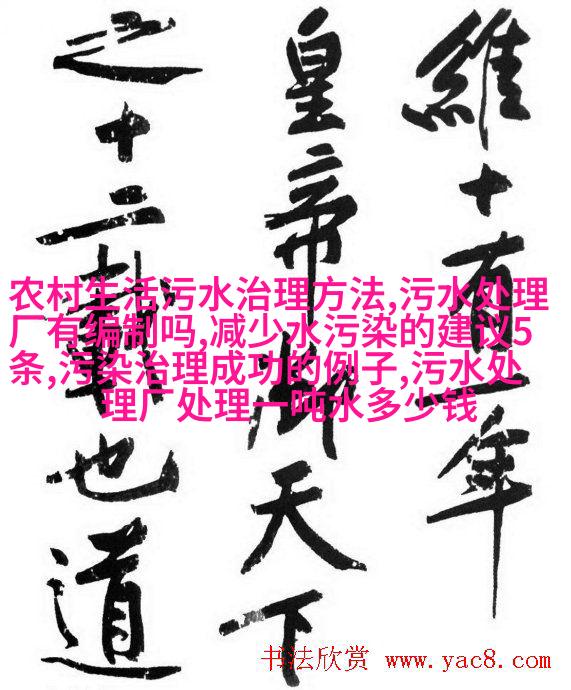 維十有一年
皇帝御天下
之十二載也道
农村生活污水治理方法,污水处理
厂有编制吗,减少水污染的建议5
条,污染治理成功的例子,污水处
理厂处理一吨水多少钱
书法欣赏 www.yac8.com